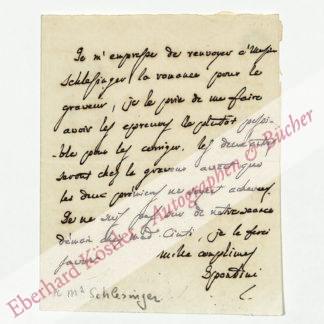 Je m'empresse de renvoyer à Mr
Schlesinger la romance pour le
graveur, je le prie de me faire
avoir les epreuves le plutot possi-
ble pour les corriger. les deux autres
seront chez le graveur avant que
les deux premieres ne soyent achevées.
Je ne suis pas sur de notre seance
demain chez Mad. Cinti, je le ferai
savoir. mille complimens
Spontini
Schlesinger
Eberhard Köstler, Autographen & Bücher